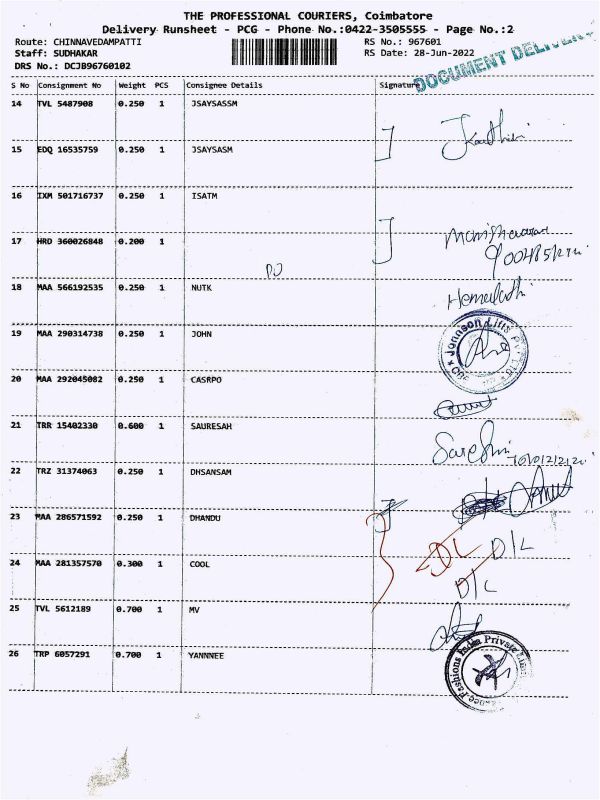 THE PROFESSIONAL COURIERS, Coimbatore
Delivery Runsheet - PCG - Phone No.:0422-3505555 - Page No.:2
Route: CHINNAVEDAMPATTI RS No.: 967601
Staff: SUDHAKAR RS Date: 28-Jun-2022
DRS No.: DCJB96760102
DOCUMENT DELIVERY
S No Consignment No Weight PCS Consignee Details Signature
14 TVL 5487908 0.250 1 JSAYSASSM
15 EDQ 16535759 0.250 1 JSAYSASM
16 IXM 501716737 0.250 1 ISATM
17 HRD 360026848 0.200 1
18 MAA 566192535 0.250 1 NUTK
19 MAA 290314738 0.250 1 JOHN
20 MAA 292045082 0.250 1 CASRPO
21 TRR 15402330 0.600 1 SAURESAH
22 TRZ 31374063 0.250 1 DHSANSAM
23 MAA 286571592 0.250 1 DHANDU
DL D/L
24 MAA 281357570 0.300 1 COOL
D/L
25 TVL 5612189 0.700 1 MV
26 TRP 6057291 0.700 1 YANNNEE